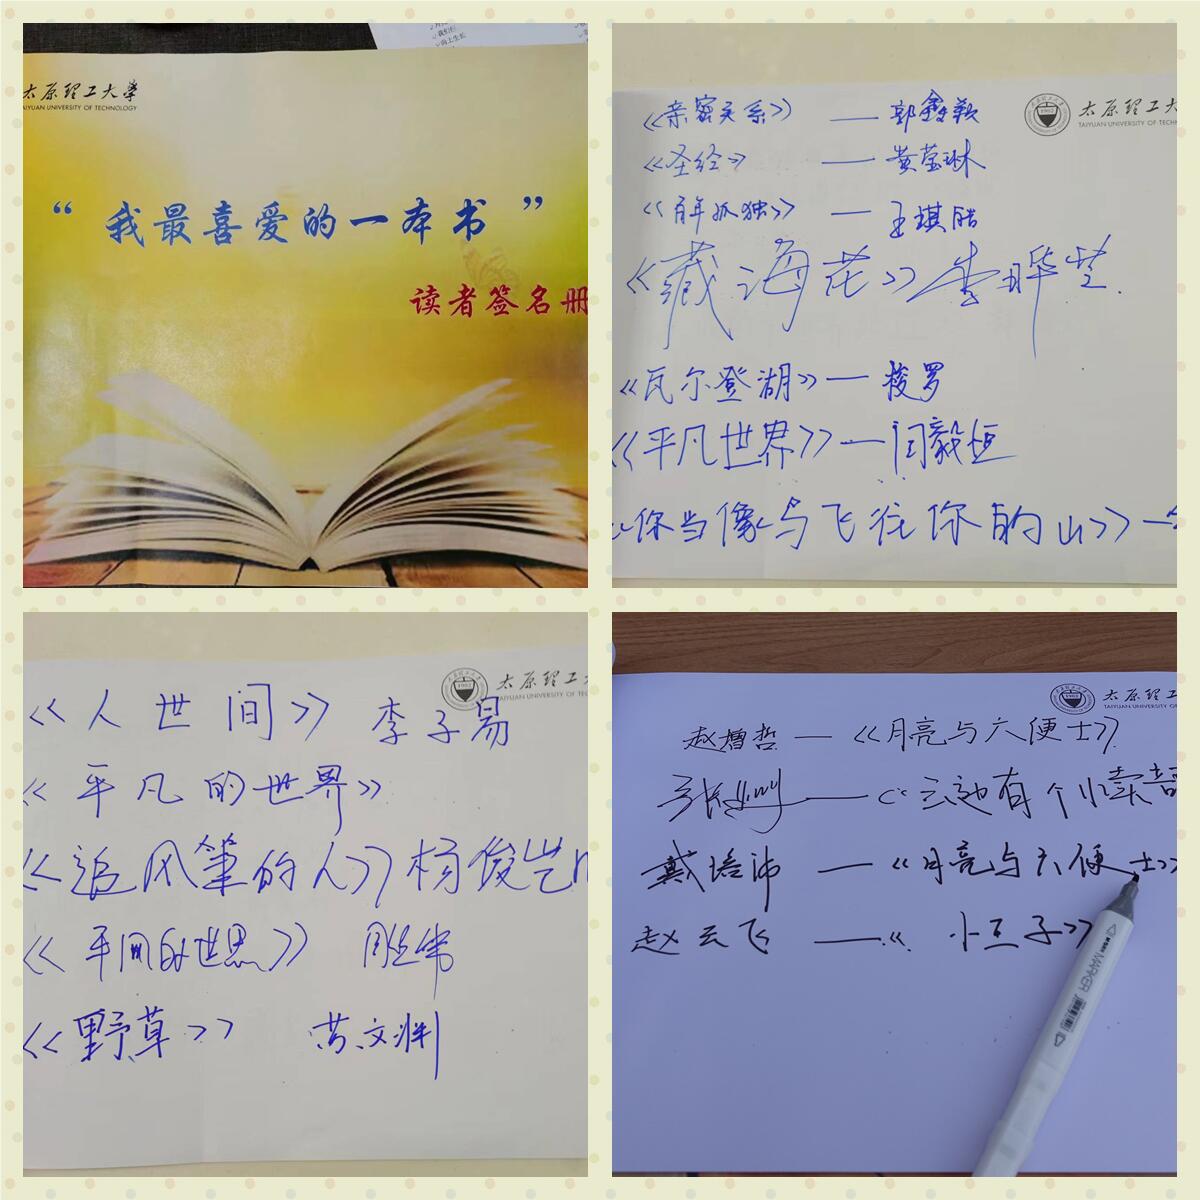 太原理工大学
TAIYUAN UNIVERSITY OF TECHNOLOGY
“我最喜爱的一本书”
读者签名册
太原理工大
TAIYUAN UNIVERSITY OF TECH
《亲密关系》——郭鑫颖
《圣经》——黄莹琳
《百年孤独》——王琪皓
《藏海花》李晔芝
《瓦尔登湖》—梭罗
《平凡世界》—闫毅恒
《你当像鸟飞往你的山》—
太原理工
TAIYUAN UNIVERSITY OF TE
《人世间》李子易
《平凡的世界》
《追风筝的人》杨俊岂
《平凡的世界》
《野草》 黄文渊
太原理工
TAIYUAN UNIVERSITY OF
赵增哲—《月亮与六便士》
张 ——《云边有个小卖部
戴培沛——《月亮与六便士》
赵云飞——《小王子》
MARKER